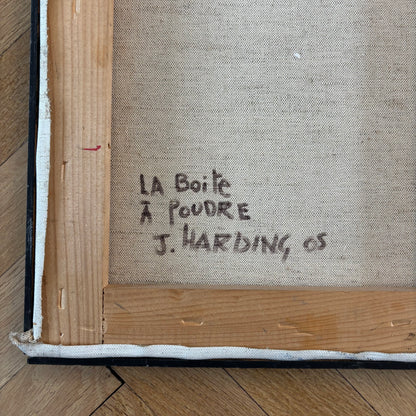 LA BoiTe
À POUDRE
J. HARDING 05